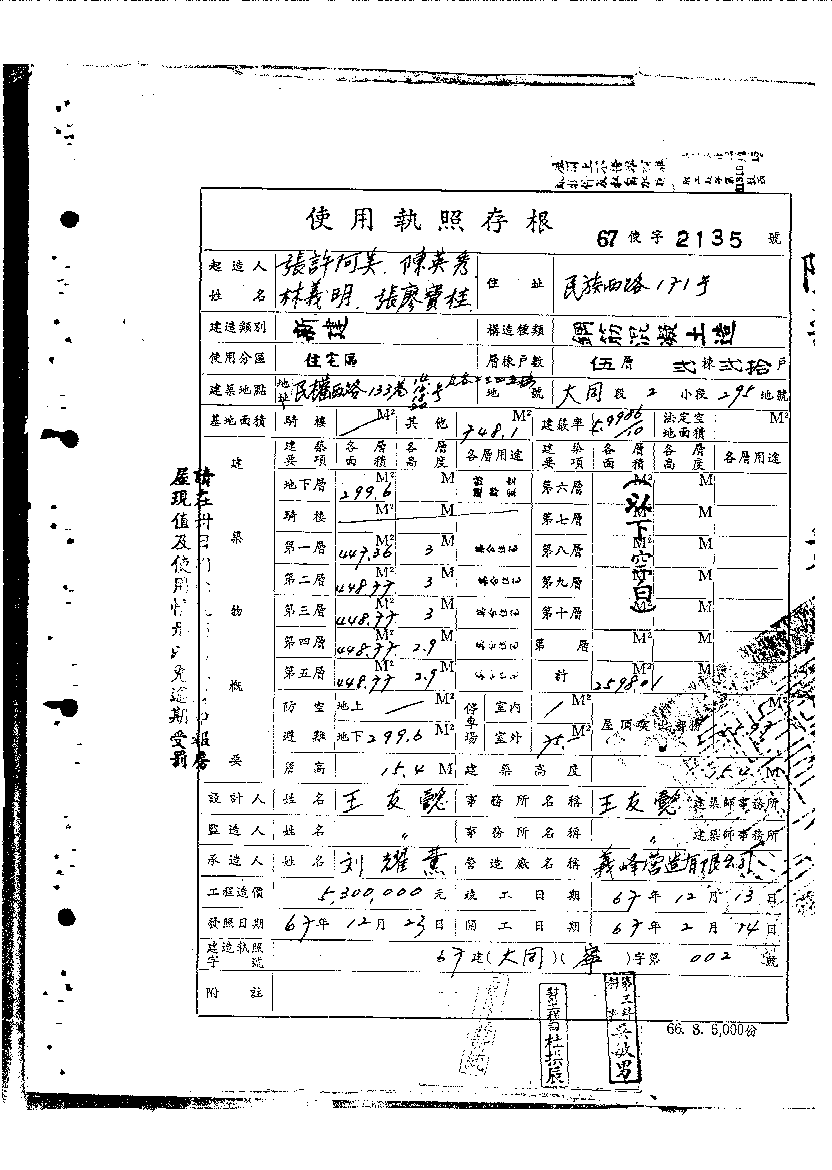 使用執照存根
67 使字 2135 號
起造人 張許阿美、陳英秀、 住址 民族西路171号
姓名 林義明、張廖寶桂
建造類別 新建 構造種類 鋼筋混凝土造
使用分區 住宅區 層棟戶數 伍層 弍棟弍拾戶
建築地點 地址 民權西路133巷 号 地號 大同段2小段295地號
基地面積 騎樓 M² 其他 748.1 M² 建蔽率 5.9986/10 法定空地面積 M²
建築物概要
建築要項 各層面積 各層高度 各層用途 建築要項 各層面積 各層高度 各層用途
地下層 299.6 M² M 第六層 M² M
騎樓 M² M 第七層 M² M
(以下空白)
第一層 447.36 M² 3 M 第八層 M² M
第二層 448.77 M² 3 M 第九層 M² M
第三層 448.77 M² 3 M 第十層 M² M
第四層 448.77 M² 2.9 M 第 層 M² M
第五層 448.77 M² 2.9 M 計 2598.01 M² M
防空避難 地上 M² 停車場 室內 M²
地下 299.6 M² 室外 M² 屋頂突出物
簷高 15.4 M 建築高度 15.4 M
設計人 姓名 王友懿 事務所名稱 王友懿 建築師事務所
監造人 姓名 〃 事務所名稱 〃 建築師事務所
承造人 姓名 刘耀薰 營造廠名稱 義峰營造有限公司
工程造價 5,300,000元 竣工日期 67年12月13日
發照日期 67年12月23日 開工日期 67年2月14日
建造執照字號 67建(大同)( )字第002號
附註
66. 8. 5,000份
第工科 吳敏男